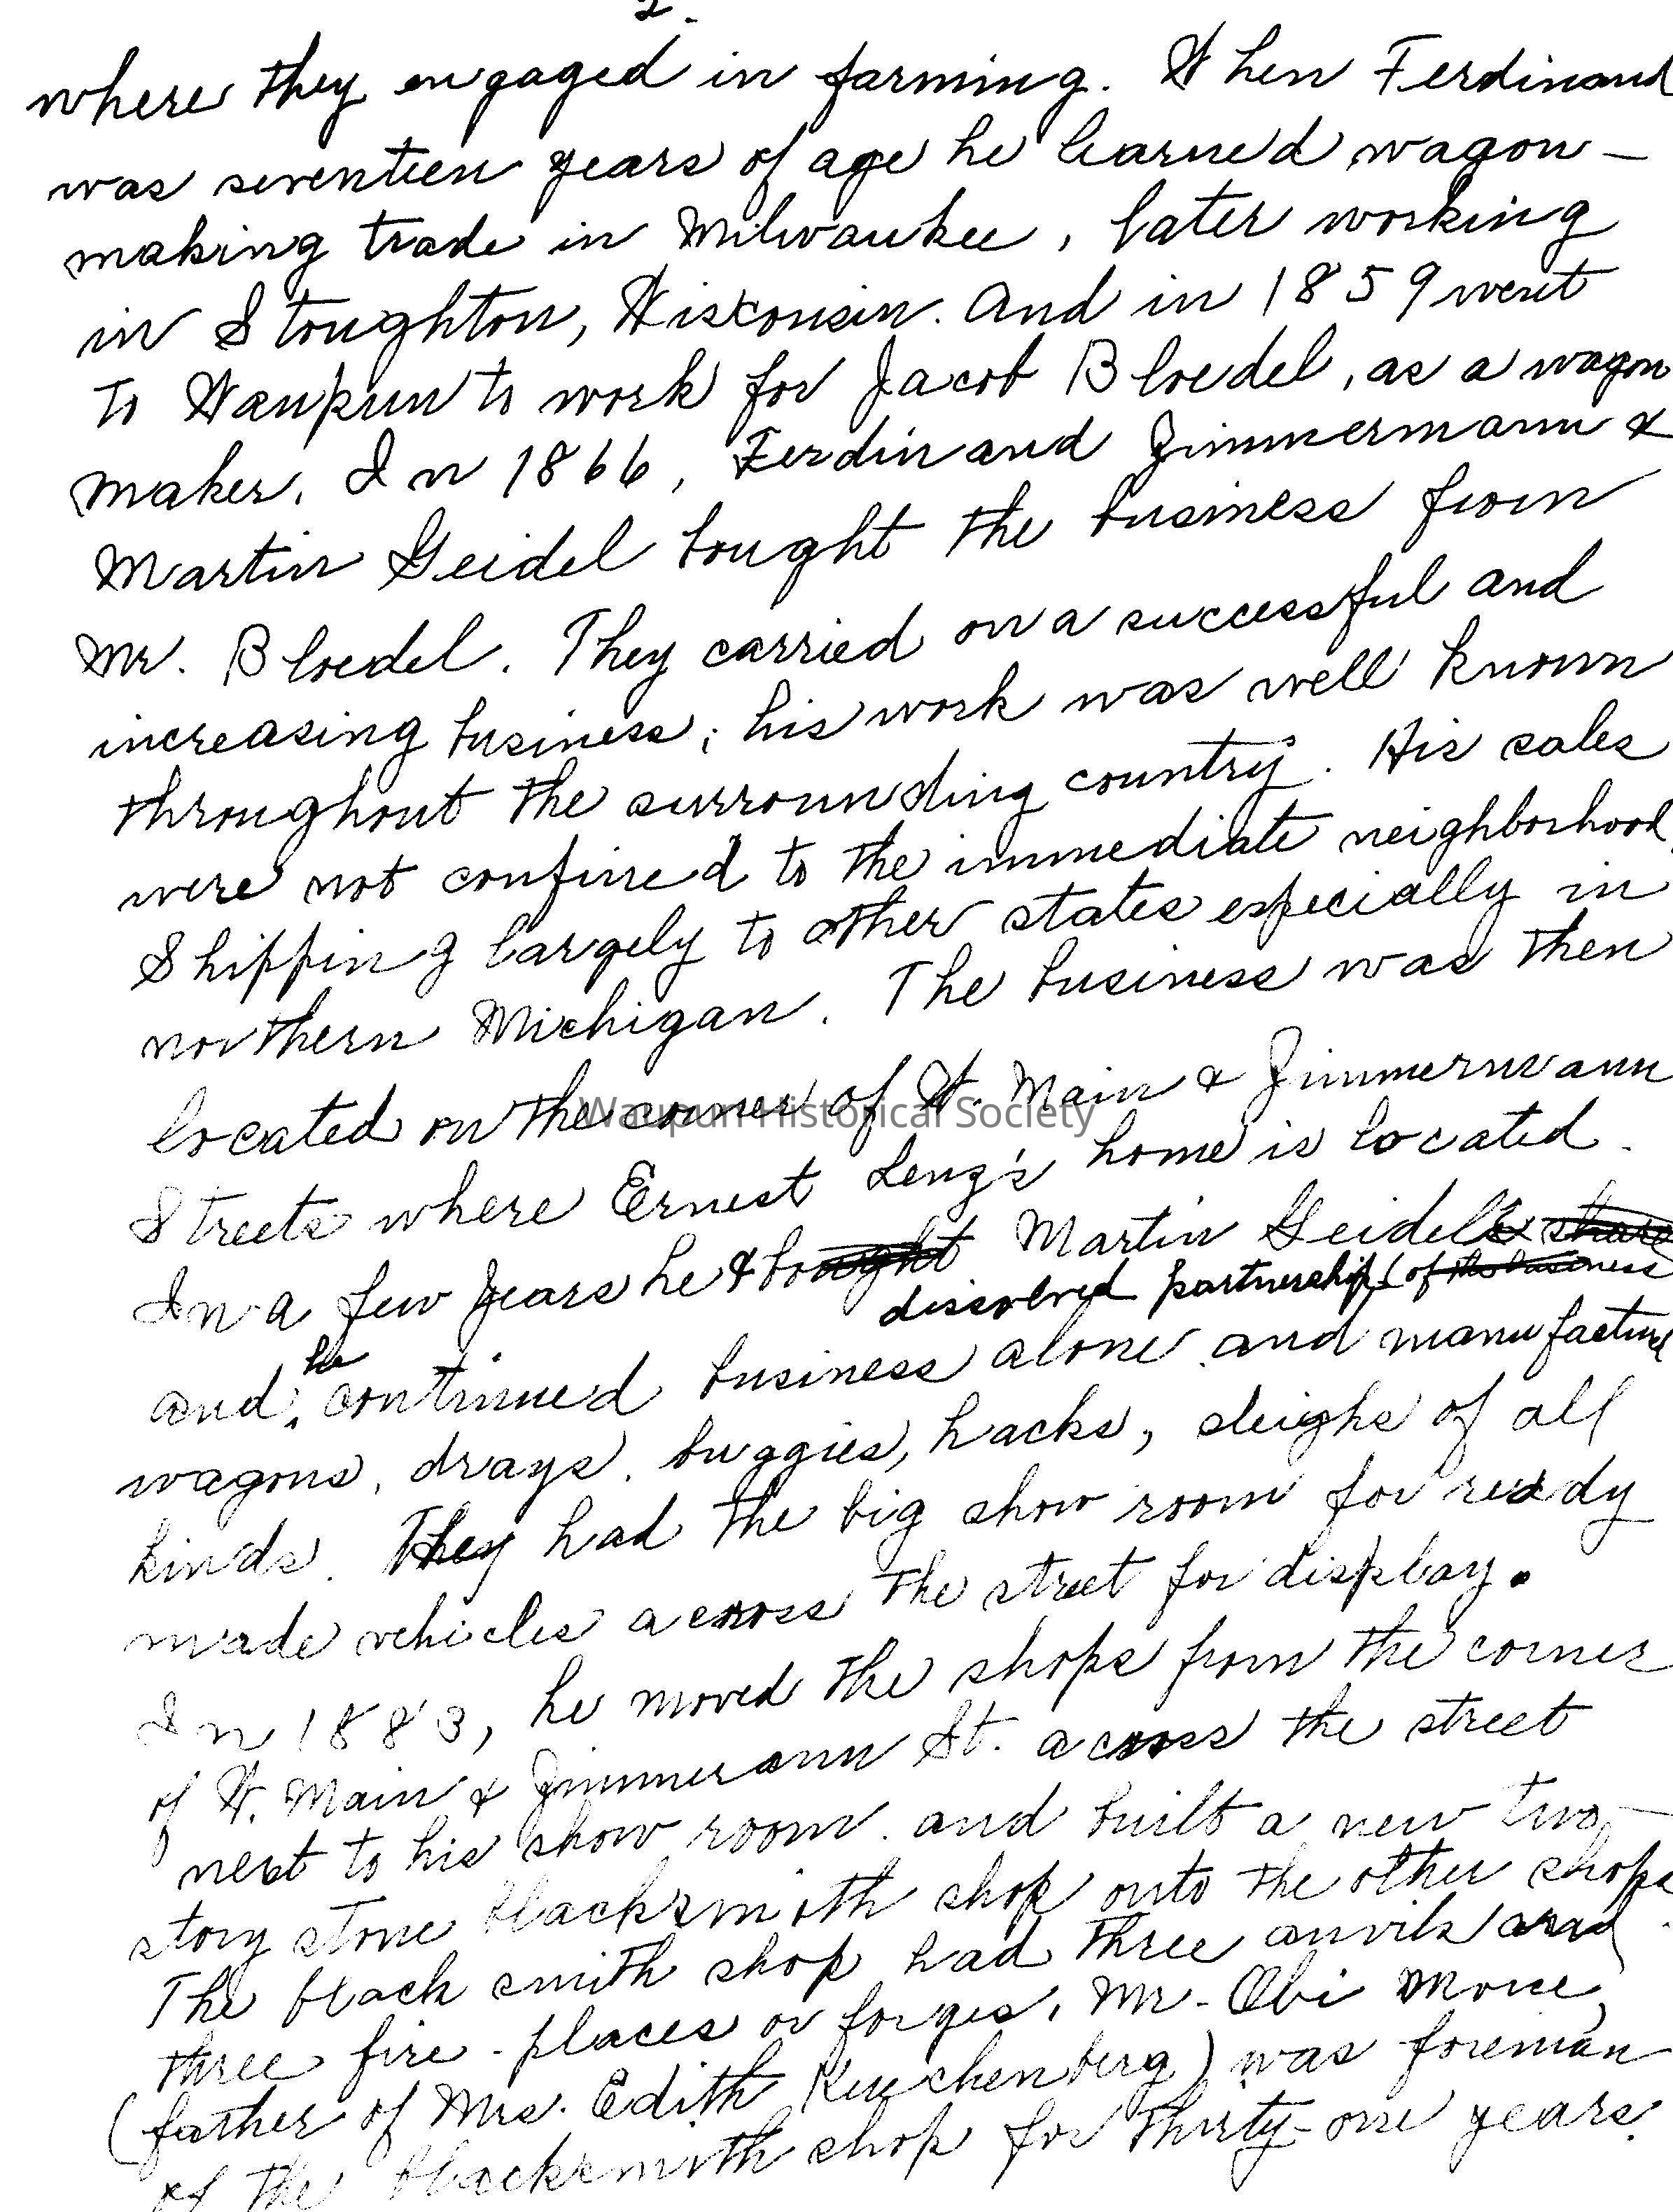 2.
where they engaged in farming. When Ferdinand
was seventeen years of age he learned wagon-
making trade in Milwaukee, later working
in Stoughton, Wisconsin. And in 1859 went
to Waupun to work for Jacob Bloedel, as a wagon
maker. In 1866, Ferdinand Zimmermann &
Martin Seidel bought the business from
Mr. Bloedel. They carried on a successful and
increasing business; his work was well known
throughout the surrounding country. His sales
were not confined to the immediate neighborhood,
Shipping largely to other states especially in
northern Michigan. The business was then
located on the corner of W. Main & Zimmermann
Waupun Historical Society
Streets where Ernest Lenz's home is located.
In a few years he & bought Martin Seidel's share
dissolved partnership (of the business
and, he continued business alone and manufacture
wagons, drays, buggies, hacks, sleighs of all
kinds. They had the big show room for ready
made vehicles across the street for display.
In 1883, he moved the shops from the corner
of W. Main & Zimmermann St. across the street
next to his show room. and built a new two-
story stone blacksmith shop onto the other shops.
The black smith shop had three anvils and
three fire-places or forges. Mr. Obi Morse,
(father of Mrs. Edith Kuechenberg) was foreman
of the blacksmith shop for thirty-one years.